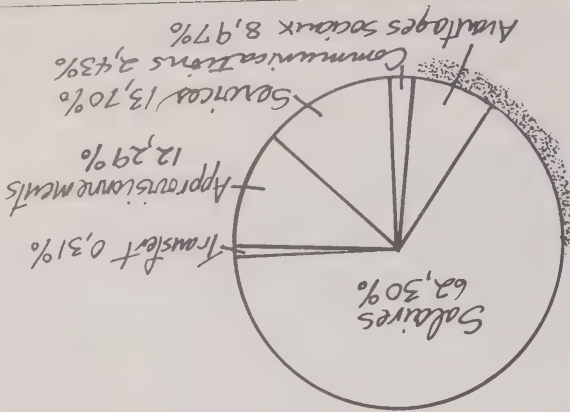 Salaires
62,30%
Transfert 0,31%
Approvisionnements
12,29%
Services 13,70%
Communications 2,43%
Avantages sociaux 8,97%